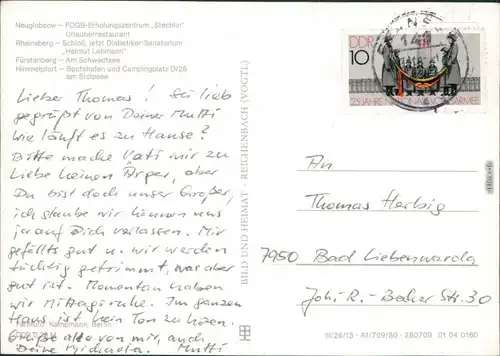 Neuglobsow — FDGB-Erholungszentrum „Stechlin"
Urlauberrestaurant
Rheinsberg — Schloß, jetzt Diabetiker-Sanatorium
„Helmut Lehmann"
Fürstenberg — Am Schwedtsee
Himmelpfort — Bootshafen und Campingplatz D/26
am Stolpsee
Lieber Thomas! Sei lieb
gegrüßt von Deiner Mutti
Wie läuft es zu Hause?
Bitte mache Vati mir zu
Liebe keinen Ärger, aber
Du bist doch unser Großer,
ich glaube wir können uns
ja auf Dich verlassen. Mir
gefällts gut u. wir werden
tüchtig getrimmt, was aber
gut ist. Momentan haben
wir Mittagsruhe. Im ganzen
Haus ist kein Ton zu hören.
Grüße alle von mir, auch
Deine Michaela. Mutti
Farbfoto: Kampmann, Berlin
BILD UND HEIMAT · REICHENBACH (VOGTL)
DDR
10
25 JAHRE NATIONALE VOLKSARMEE
An
Thomas Herbig
7950 Bad Liebenwerda
Joh. R.-Becher Str. 30
III/26/13 · A1/709/80 · 280709 01 04 0160